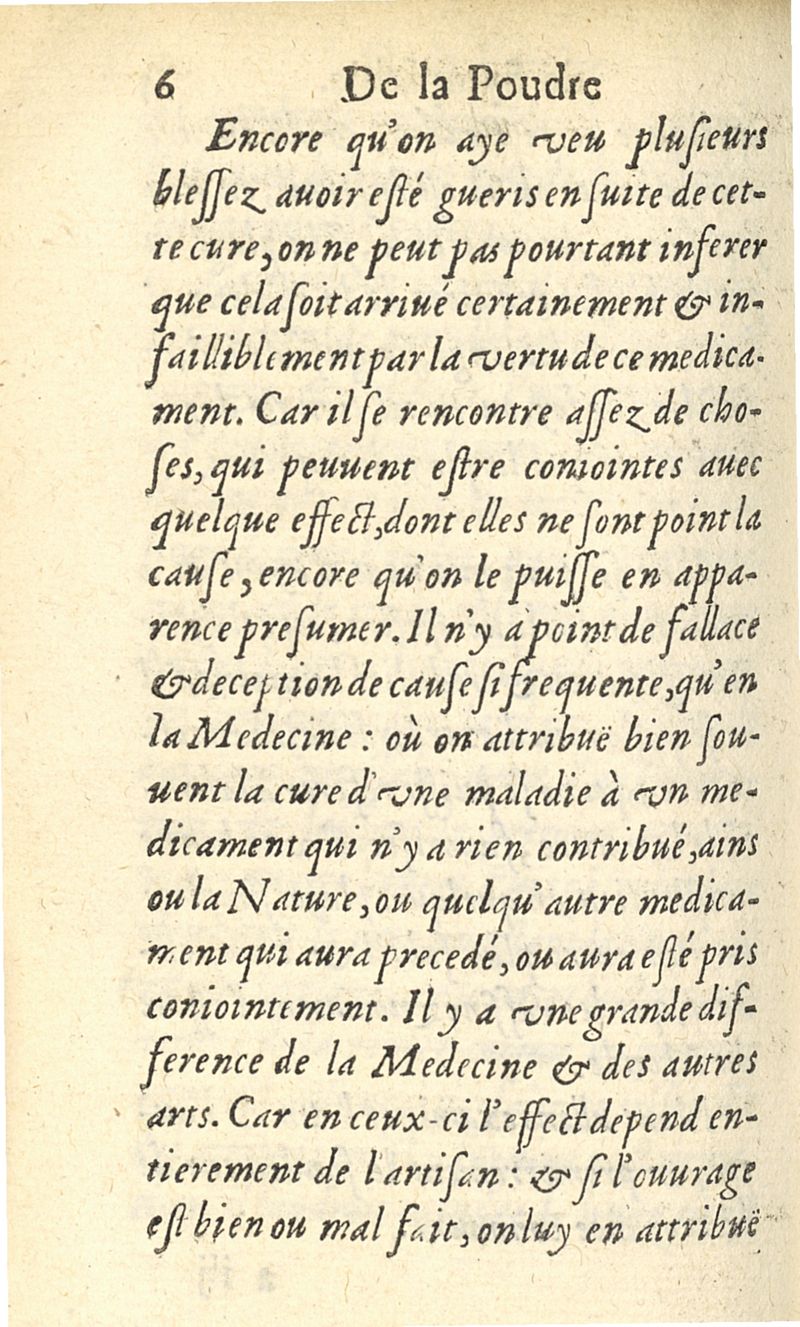 6 De la Poudre
Encore qu'on aye veu pluſieurs
bleſſez auoir eſté gueris en ſuite de cet-
te cure, on ne peut pas pourtant inferer
que cela ſoit arriué certainement & in-
failliblement par la vertu de ce medica-
ment. Car il ſe rencontre aſſez de cho-
ſes, qui peuuent eſtre coniointes auec
quelque effect, dont elles ne ſont point la
cauſe, encore qu'on le puiſſe en appa-
rence preſumer. Il n'y a point de fallace
& deception de cauſe ſi frequente, qu'en
la Medecine : où on attribuë bien ſou-
uent la cure d'vne maladie à vn me-
dicament qui n'y a rien contribué, ains
ou la Nature, ou quelqu'autre medica-
ment qui aura precedé, ou aura eſté pris
coniointement. Il y a vne grande dif-
ference de la Medecine & des autres
arts. Car en ceux-ci l'effect depend en-
tierement de l'artiſan : & ſi l'ouurage
eſt bien ou mal fait, on luy en attribuë